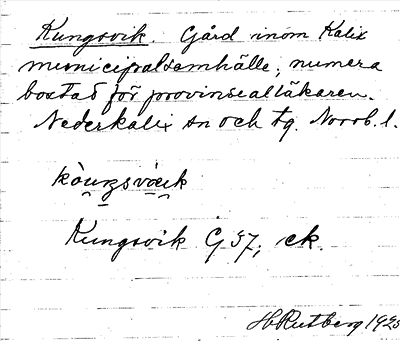 Kungsvik. Gård inom Kalix
municipalsamhälle; numera
bostad för provinsealläkaren.
Nederkalix sn och tg. Norrb. l.
Kungsvik G 37, ck.
H Rutberg